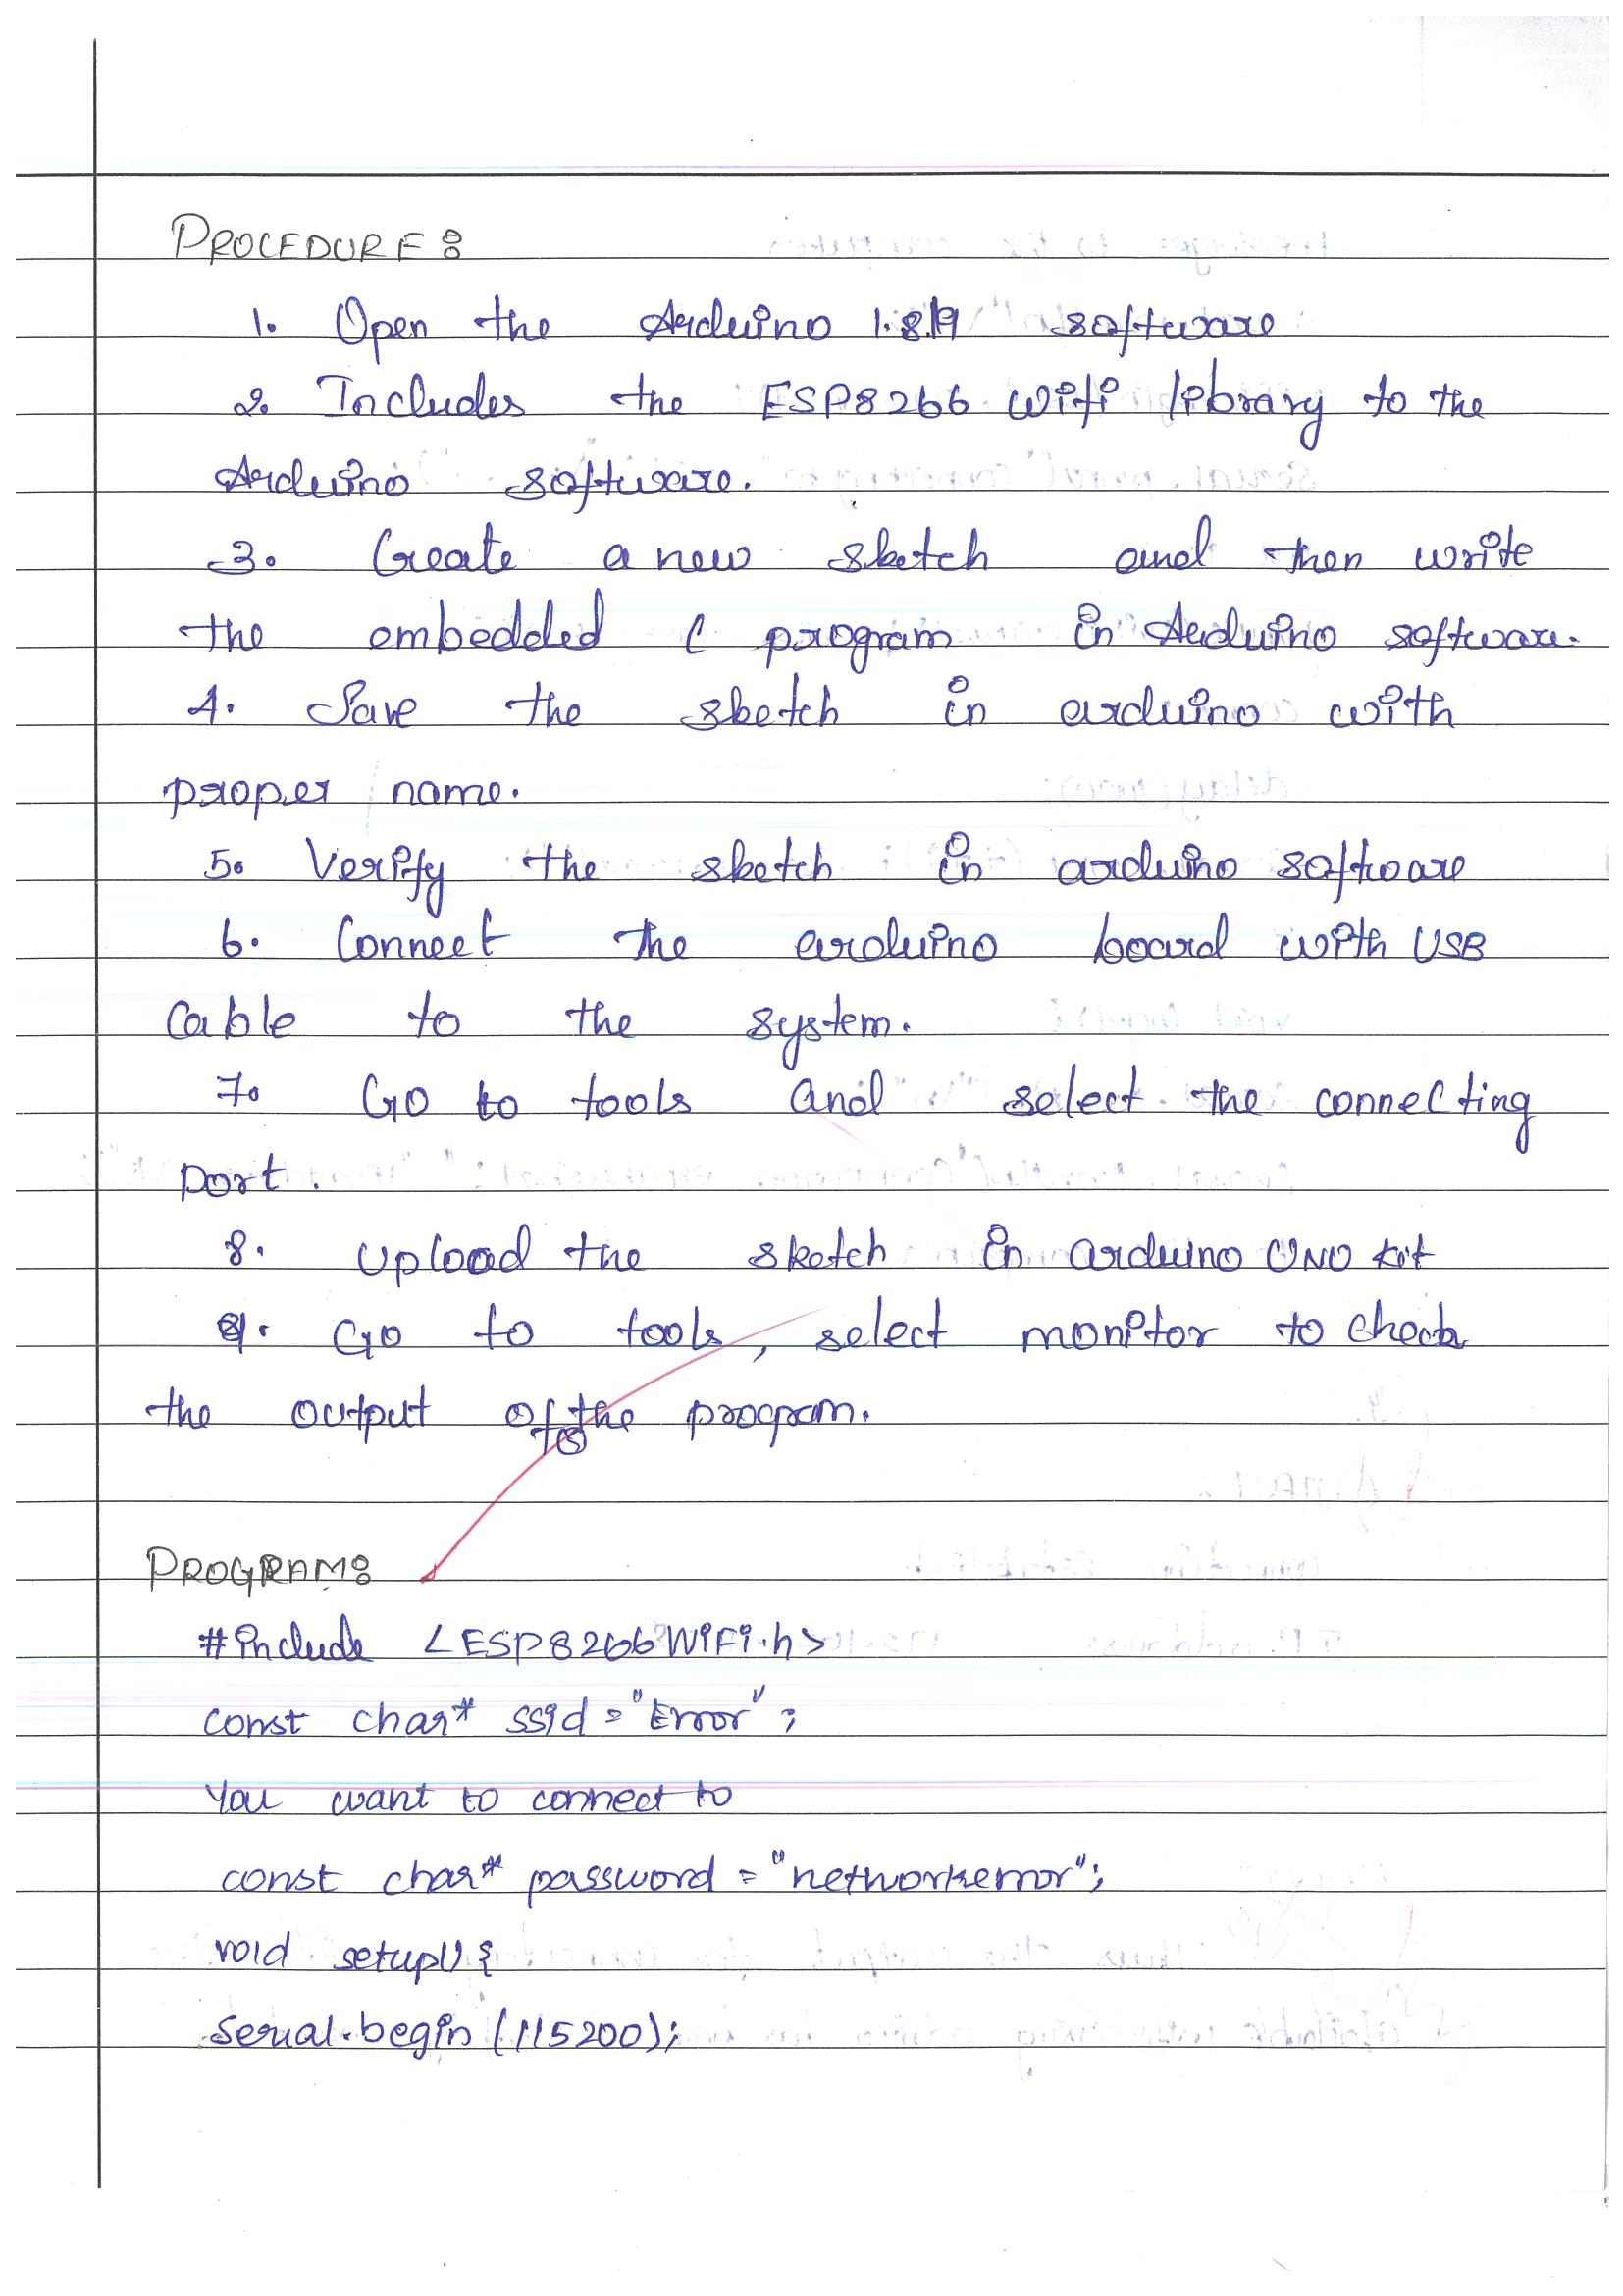 PROCEDURE:
1. Open the Arduino 1.8.19 software
2. Includes the ESP8266 wifi library to the
Arduino software.
3. Create a new sketch and then write
the embedded C program in Arduino software.
4. Save the sketch in arduino with
proper name.
5. Verify the sketch in arduino software
6. Connect the arduino board with USB
Cable to the system.
7. Go to tools and select the connecting
port.
8. Upload the sketch in arduino UNO kit
9. Go to tools, select monitor to check
the output of the program.
PROGRAM:
#include <ESP8266WiFi.h>
const char* ssid = "Error";
You want to connect to
const char* password = "networkerror";
void setup() {
Serial.begin (115200);